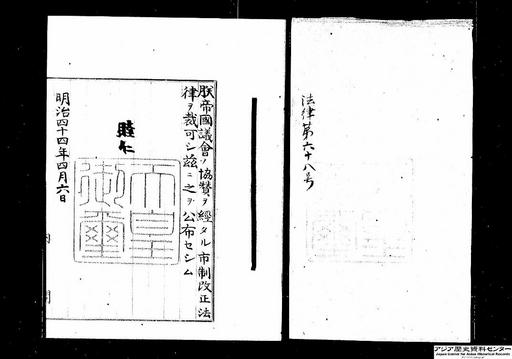 法律第六十八号
朕帝國議會ノ協賛ヲ經タル市制改正法
律ヲ裁可シ茲ニ之ヲ公布セシム
睦仁
天皇
御璽
明治四十四年四月六日
内閣
アジア歴史資料センター
Japan Center for Asian Historical Records